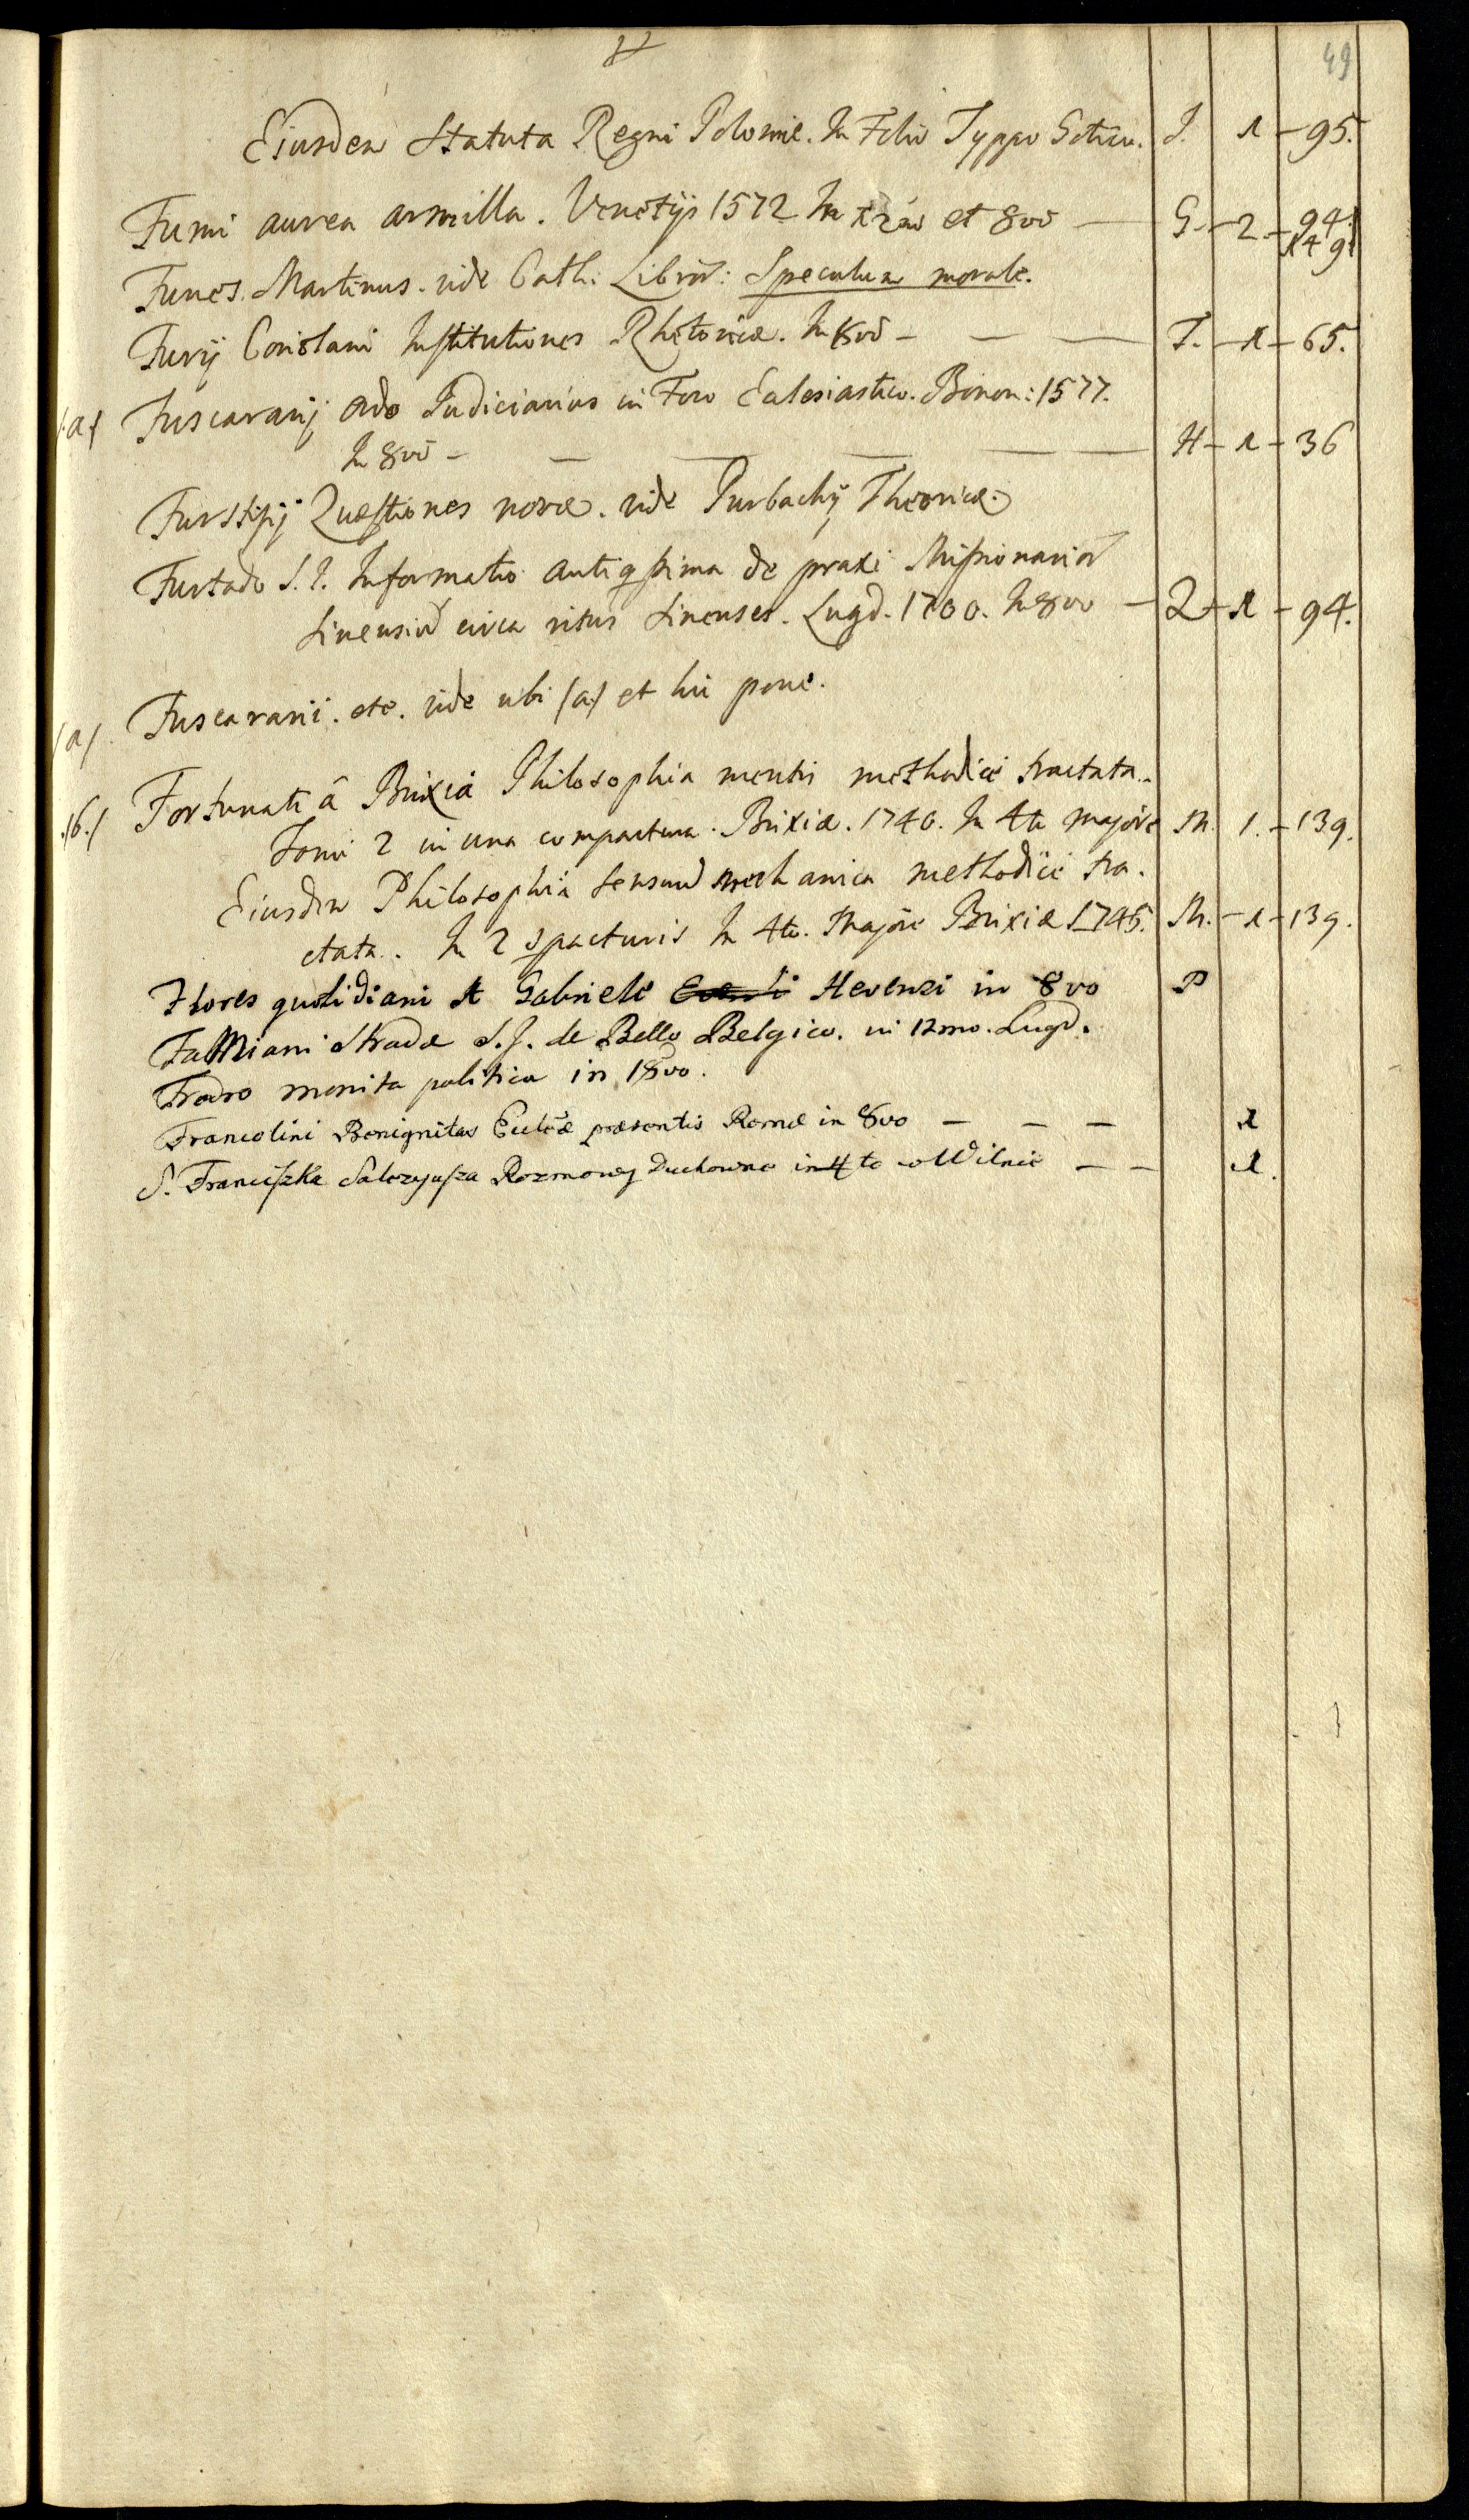 49
Eiusdem Statuta Regni Poloniæ. In Folio Typpo Gothico. J. 1 - 95.
Fumi aurea armilla. Venetijs 1572 In et 8vo — G. - 2 - 94.
149
Funes. Martinus. vide Cath. Libror: Speculum morale.
Furij Coriolani Institutiones Rhetoricæ. In 8vo — — — F. - 1 - 65.
/:a:/ Fuscararij Ordo Judiciarius in Foro Eclesiastico. Bonon: 1577.
In 8vo — — — — — H - 1 - 36
Furstisij Quæstiones novæ. vide Purbachij Theoricæ.
Furtado S.J. Informatio antiqssima de praxi Missionarior
Sinensiū circa ritus Sinenses. Lugd. 1700. In 8vo — Q - 1 - 94.
/a/ Fuscararii. etc. vide ubi /a/ et hic pone.
/b./ Fortunati â Brixiâ Philosophia mentis methodicè tractata.
Tomi 2 in una compactura. Brixiæ. 1740. In 4to majore M. 1. - 139.
Eiusdem Philosophia sensuum mechanica methodicè tra-
ctata. In 2 cpacturis In 4to. Majore Brixiæ 1745. M. - 1 - 139.
Flores quotidiani A Gabriele Hevenzi in 8vo P
FaMiani Stradæ S.J. de Bello Belgico. in 12mo. Lugd.
Fredro monita politica in 18vo.
Francolini Benignitas Eccleæ præsentis Romæ in 8vo — — — 1
S. Franciszka Salezyusza Rozmowy Duchowne in 4to w Wilnie — — 1.